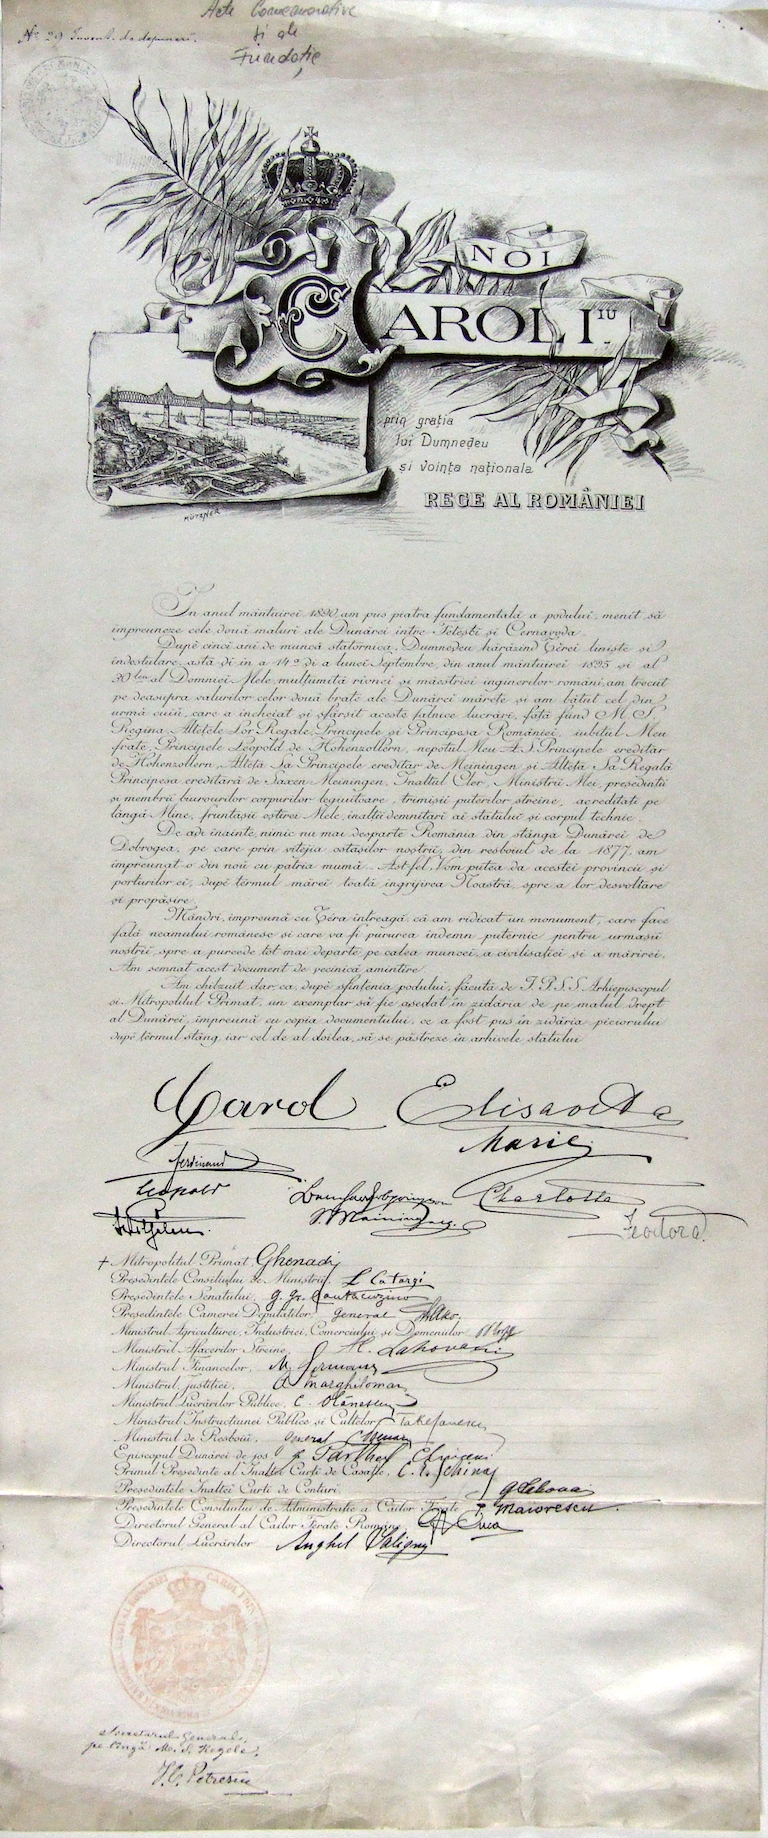 Acte Comemorative
și ale
Fundație
No 29 Invent. de depuneri.
NOI
CAROL I IU
prin grația
lui Dumnedeu
și voința națională
REGE AL ROMÂNIEI
MÜTZNER
In anul mântuirei 1890, am pus piatra fundamentală a podului, menit să
împreuneze cele două maluri ale Dunărei între Fetești și Cernavoda.
După cinci ani de muncă statornica, Dumnedeu hărăzind Țĕrei liniște și
indestulare, astă-di în a 14a di a lunei Septembre, din anul mântuirei 1895 și al
30lea al Domniei Mele, mulțumită rivnei și măestriei inginerilor români, am trecut
pe deasupra valurilor celor două brațe ale Dunărei mărețe și am bătut cel din
urmă cuiŭ, care a încheiat și sfârșit aceste falnice lucrări, față fiind M. S.
Regina, Altețele Lor Regale, Principele și Principesa României, iubitul Meu
frate, Principele Leopold de Hohenzollern, nepotul Meu A. S. Principele ereditar
de Hohenzollern, Alteța Sa Principele ereditar de Meiningen și Alteța Sa Regală
Principesa ereditară de Saxen-Meiningen, Inaltul Cler, Miniștrii Mei, președinții
și membrii birourilor corpurilor legiuitoare, trimișii puterilor streine, acreditați pe
lângă Mine, fruntașii oștirei Mele, inalții demnitari ai statului și corpul technic.
De adi înainte, nimic nu mai desparte România din stânga Dunărei de
Dobrogea, pe care prin vitejia ostașilor noștrii, din resboiul de la 1877, am
împreunat-o din nou cu patria mumă. Ast-fel, Vom putea da acestei provincii și
porturilor ei, după țărmul mărei toată ingrijirea Noastră, spre a lor desvoltare
și propășire.
Mândri, împreună cu Țéra întreagă, că am ridicat un monument, care face
fală neamului românesc și care va fi pururea îndemn puternic pentru urmașii
noștrii, spre a purcede tot mai departe pe calea muncei, a civilisației și a mărirei,
Am semnat acest document de vecinică amintire.
Am chibzuit dar, ca, după sfințenia podului, făcută de I. P. S. S. Arhiepiscopul
și Mitropolitul Primat, un exemplar să fie așezat în zidăria de pe malul drept
al Dunărei, împreună cu copia documentului, ce a fost pus în zidăria piciorului
după țărmul stâng, iar cel de al doilea, să se păstreze în arhivele statului.
Carol Elisaveta
Ferdinand Marie
Leopold Charlotte
Feodora.
+ Mitropolitul Primat, Ghenadie
Președintele Consiliului de Miniștrii, L Catargi
Președintele Senatului, G. Gr. Cantacuzino
Președintele Camerei Deputaților, General Manu.
Ministrul Agriculturei, Industriei, Comerciului și Domeniilor
Ministrul Afacerilor Streine, Al. Lahovari
Ministrul Financelor, M. Germani
Ministrul justiției, A. Marghiloman
Ministrul Lucrărilor Publice, C. Olănescu
Ministrul Instrucțiunei Publice și Cultelor, Take Ionescu
Ministrul de Resboiŭ, General
Episcopul Dunărei de jos
Primul Președinte al Inaltei Curți de Casație, C. E. Schina
Președintele Inaltei Curți de Conturi,
Președintele Consiliului de Administrație a Căilor Ferate T. Maiorescu
Directorul General al Căilor Ferate Române Duca
Directorul Lucrărilor Anghel Saligny
Secretarul General,
pe lîngă M. S. Regele,